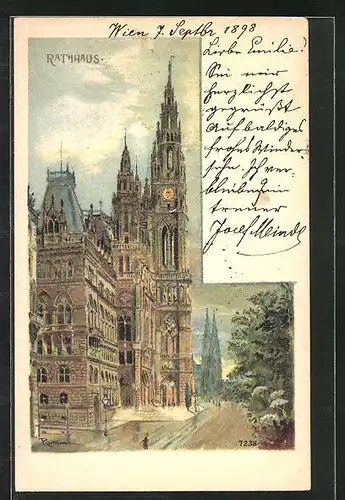 Wien 7. Septbr 1898
RATHHAUS.
Liebe Emilie!
Sei mir
herzlichst
gegrüßt
Auf baldiges
frohes Wieder-
sehn Ich ver-
bleibe Dein
treuer
Josef Meindl
7238